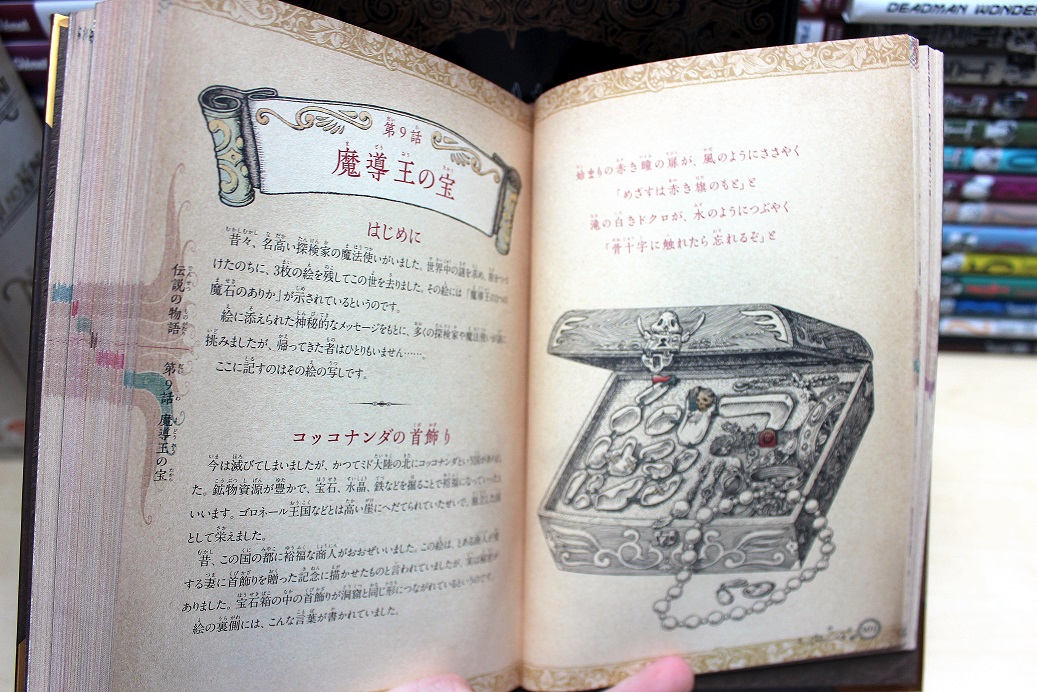 第9話
魔導王の宝
はじめに
昔々、名高い探検家の魔法使いがいました。世界中の謎を求め、旅をつづ
けたのちに、3枚の絵を残してこの世を去りました。その絵には「魔導王の
魔石のありか」が示されているというのです。
絵に添えられた神秘的なメッセージをもとに、多くの探検家や魔法使いが
挑みましたが、帰ってきた者はひとりもいません……。
ここに記すのはその絵の写しです。
コッコナンダの首飾り
今は滅びてしまいましたが、かつてミド大陸の北にコッコナンダという
た。鉱物資源が豊かで、宝石、水晶、鉄などを掘ることで裕福になっていったと
いいます。ゴロネール王国などとは高い崖にへだてられていたせいで、
として栄えました。
昔、この国の都に裕福な商人がおおぜいいました。この絵は、とある商人が愛
する妻に首飾りを贈った記念に描かせたものと言われていましたが、実は秘密が
ありました。宝石箱の中の首飾りが洞窟と同じ形につながれているというのです。
絵の裏側には、こんな言葉が書かれていました。
伝説の物語 第9話 魔導王の宝
始まりの赤き瞳の扉が、風のようにささやく
「めざすは赤き旗のもと」と
滝の白きドクロが、水のようにつぶやく
「骨十字に触れたら忘れるぞ」と
DEADMAN WONDER